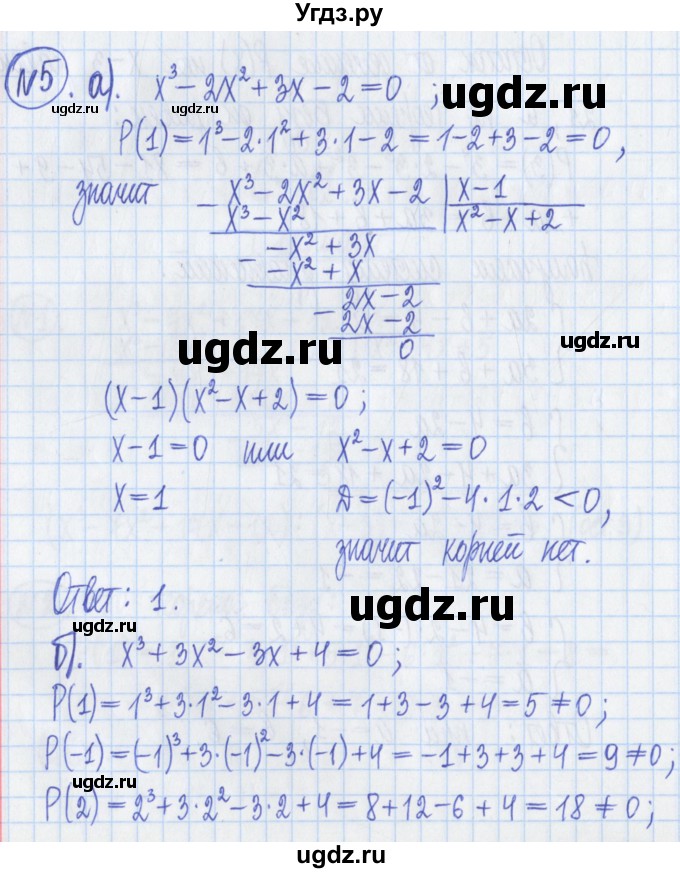 Угдз.ру
№5. а). x³ − 2x² + 3x − 2 = 0 ;
ugdz.ru ugdz.ru ugdz.ru
P(1) = 1³ − 2·1² + 3·1 − 2 = 1 − 2 + 3 − 2 = 0,
значит x³ − 2x² + 3x − 2 | x − 1
x³ − x² x² − x + 2
− −x² + 3x
−x² + x
− 2x − 2
2x − 2
0
ugdz.ru ugdz.ru
(x − 1)(x² − x + 2) = 0 ;
x − 1 = 0 или x² − x + 2 = 0
x = 1 Д = (−1)² − 4·1·2 < 0,
значит корней нет.
Ответ: 1.
ugdz.ru ugdz.ru ugdz.ru
б). x³ + 3x² − 3x + 4 = 0 ;
P(1) = 1³ + 3·1² − 3·1 + 4 = 1 + 3 − 3 + 4 = 5 ≠ 0 ;
P(−1) = (−1)³ + 3·(−1)² − 3·(−1) + 4 = −1 + 3 + 3 + 4 = 9 ≠ 0 ;
ugdz.ru ugdz.ru ugdz.ru
P(2) = 2³ + 3·2² − 3·2 + 4 = 8 + 12 − 6 + 4 = 18 ≠ 0 ;
ugdz.ru